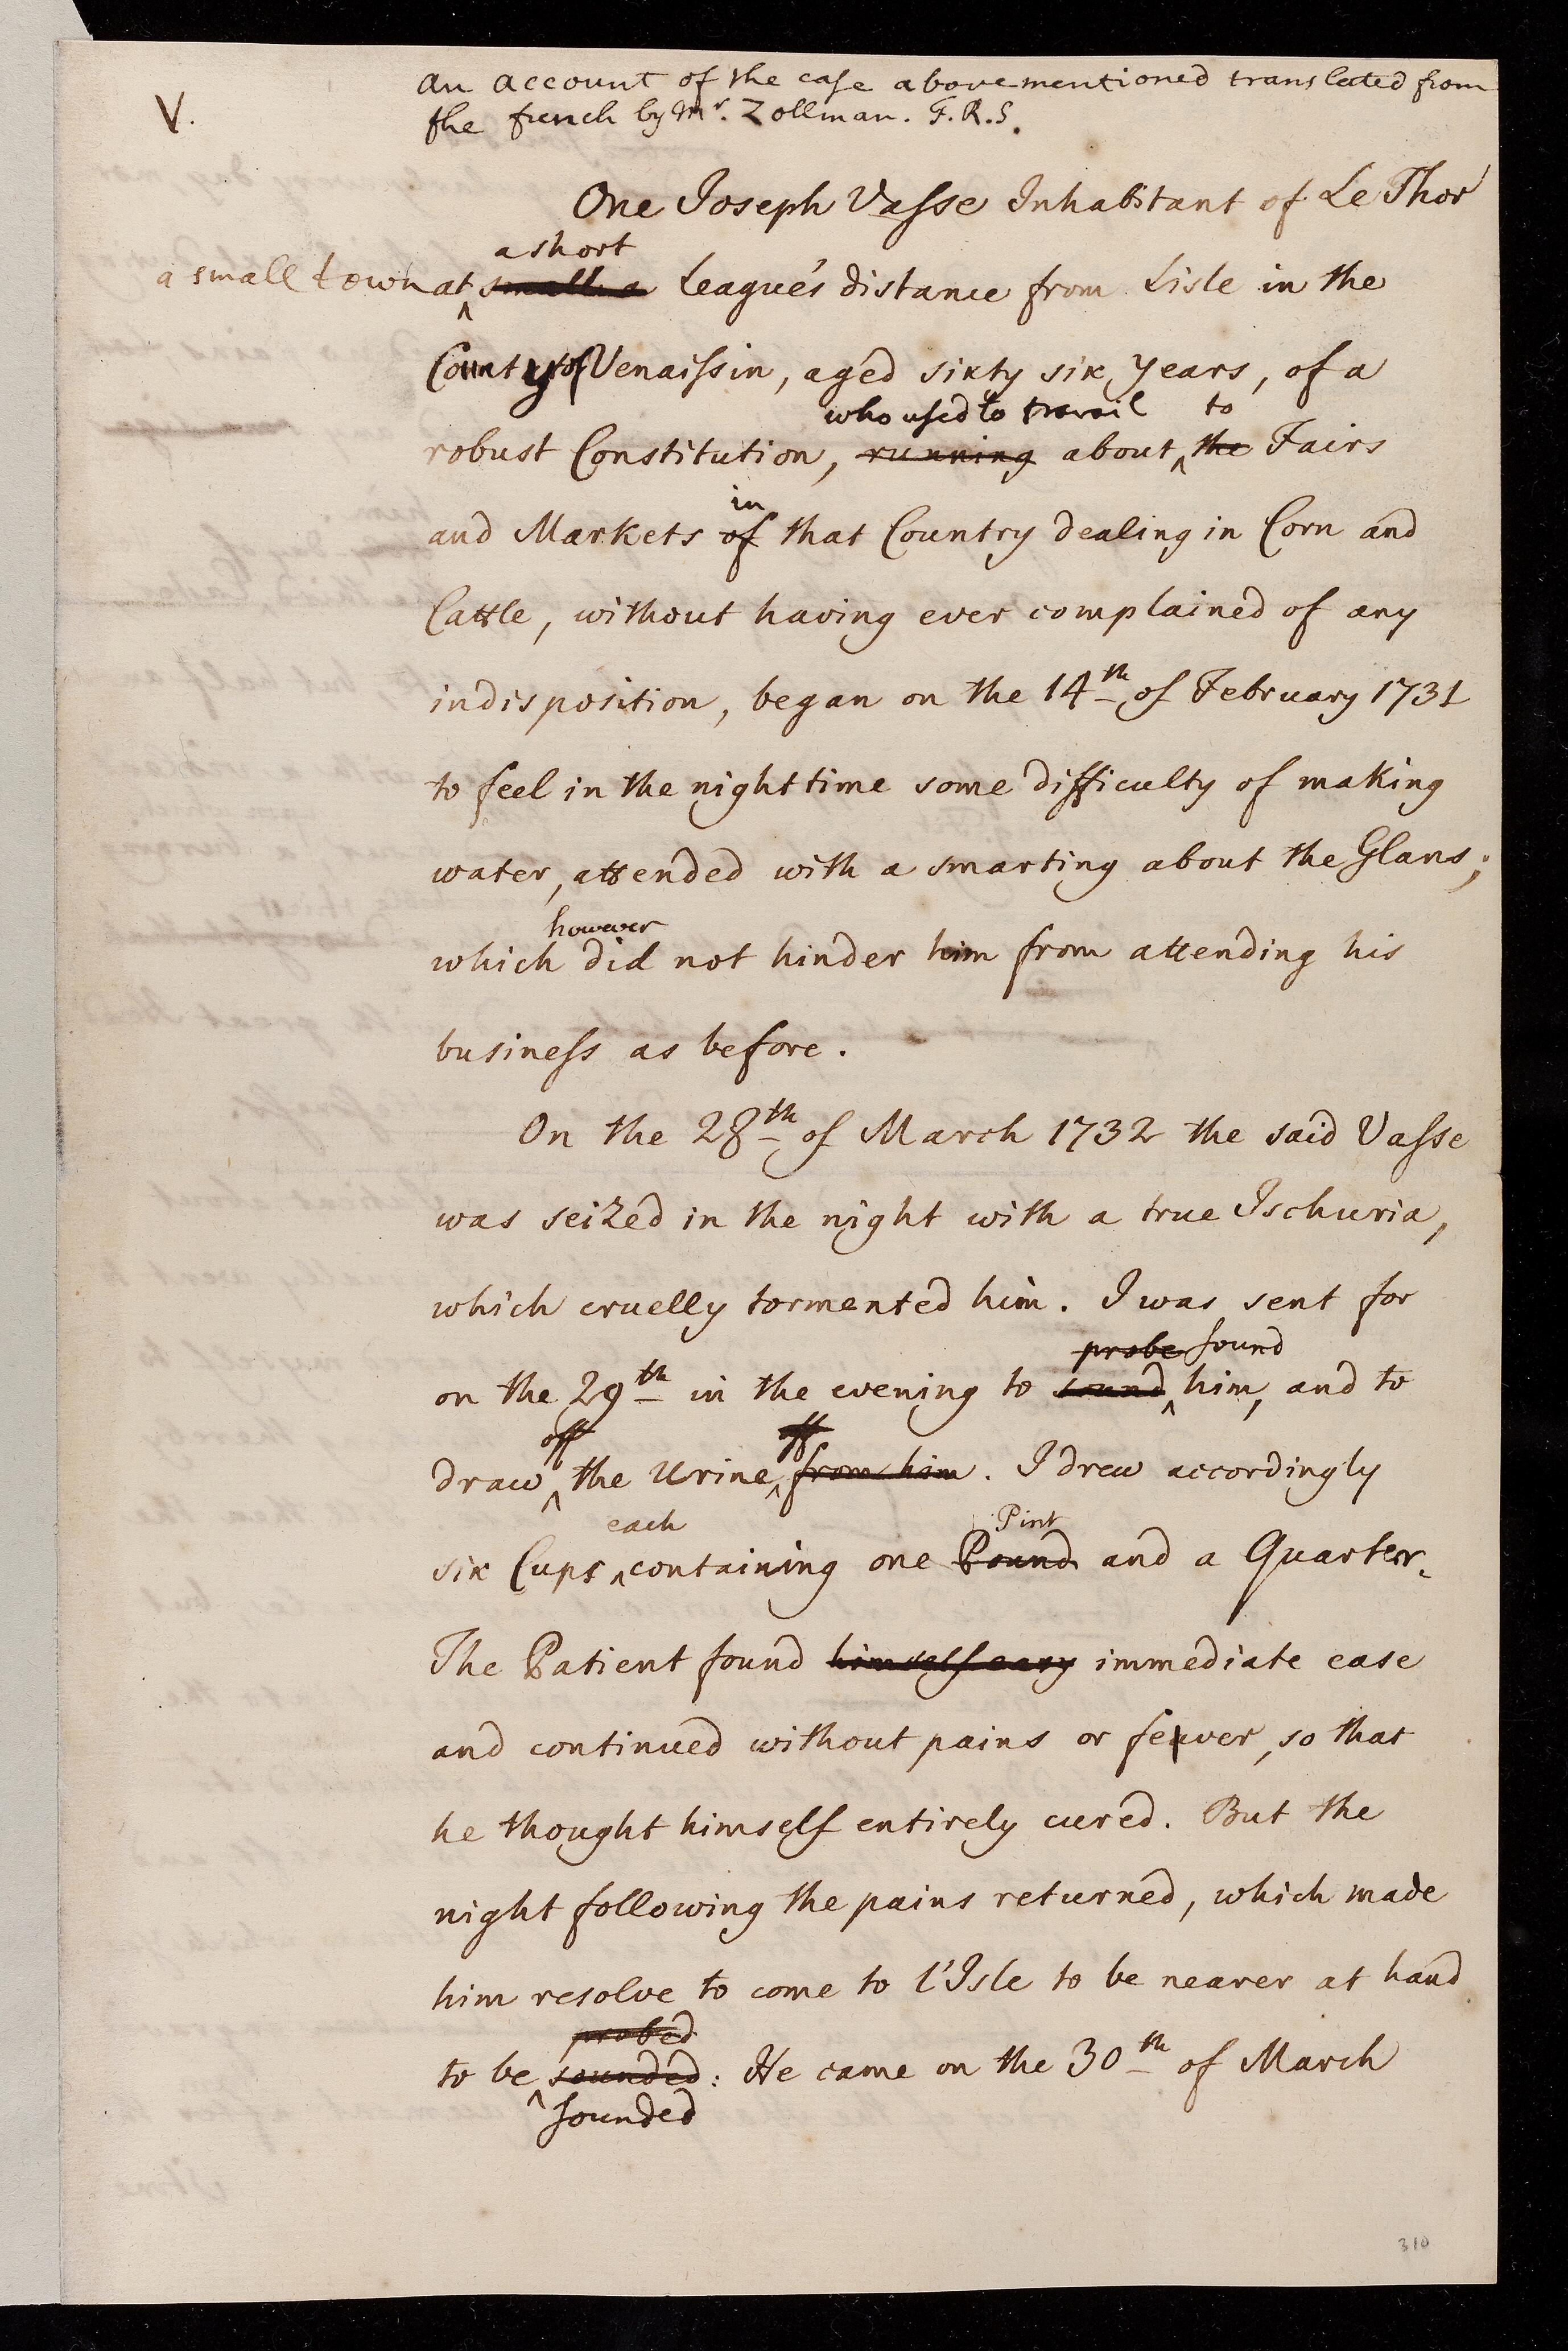 V.
an account of the case abovementioned translated from
the french by Mr. Zollman. F.R.S.
One Joseph Vasse Inhabitant of Le Thor
a short
a small town at ^ small a League's distance from Lisle in the
County of Venaissin, aged sixty six years, of a
who used to travail to
robust Constitution, running about ^ the Fairs
in
and Markets of that Country dealing in Corn and
Cattle, without having ever complained of any
indisposition, began on the 14th of February 1731
to feel in the night time some difficulty of making
water, attended with a smarting about the Glans;
however
which did not hinder him from attending his
business as before.
On the 28th of March 1732 the said Vasse
was seized in the night with a true Ischuria,
which cruelly tormented him. I was sent for
probe sound
on the 29th in the evening to sound ^ him, and to
off off
draw ^ the Urine ^ from him. I drew accordingly
each Pint
six Cups ^ containing one Pound and a Quarter.
The Patient found himself easy immediate ease
and continued without pains or fever, so that
he thought himself entirely cured. But the
night following the pains returned, which made
him resolve to come to l'Isle to be nearer at hand
probed
to be ^ sounded: He came on the 30th of March
sounded
310